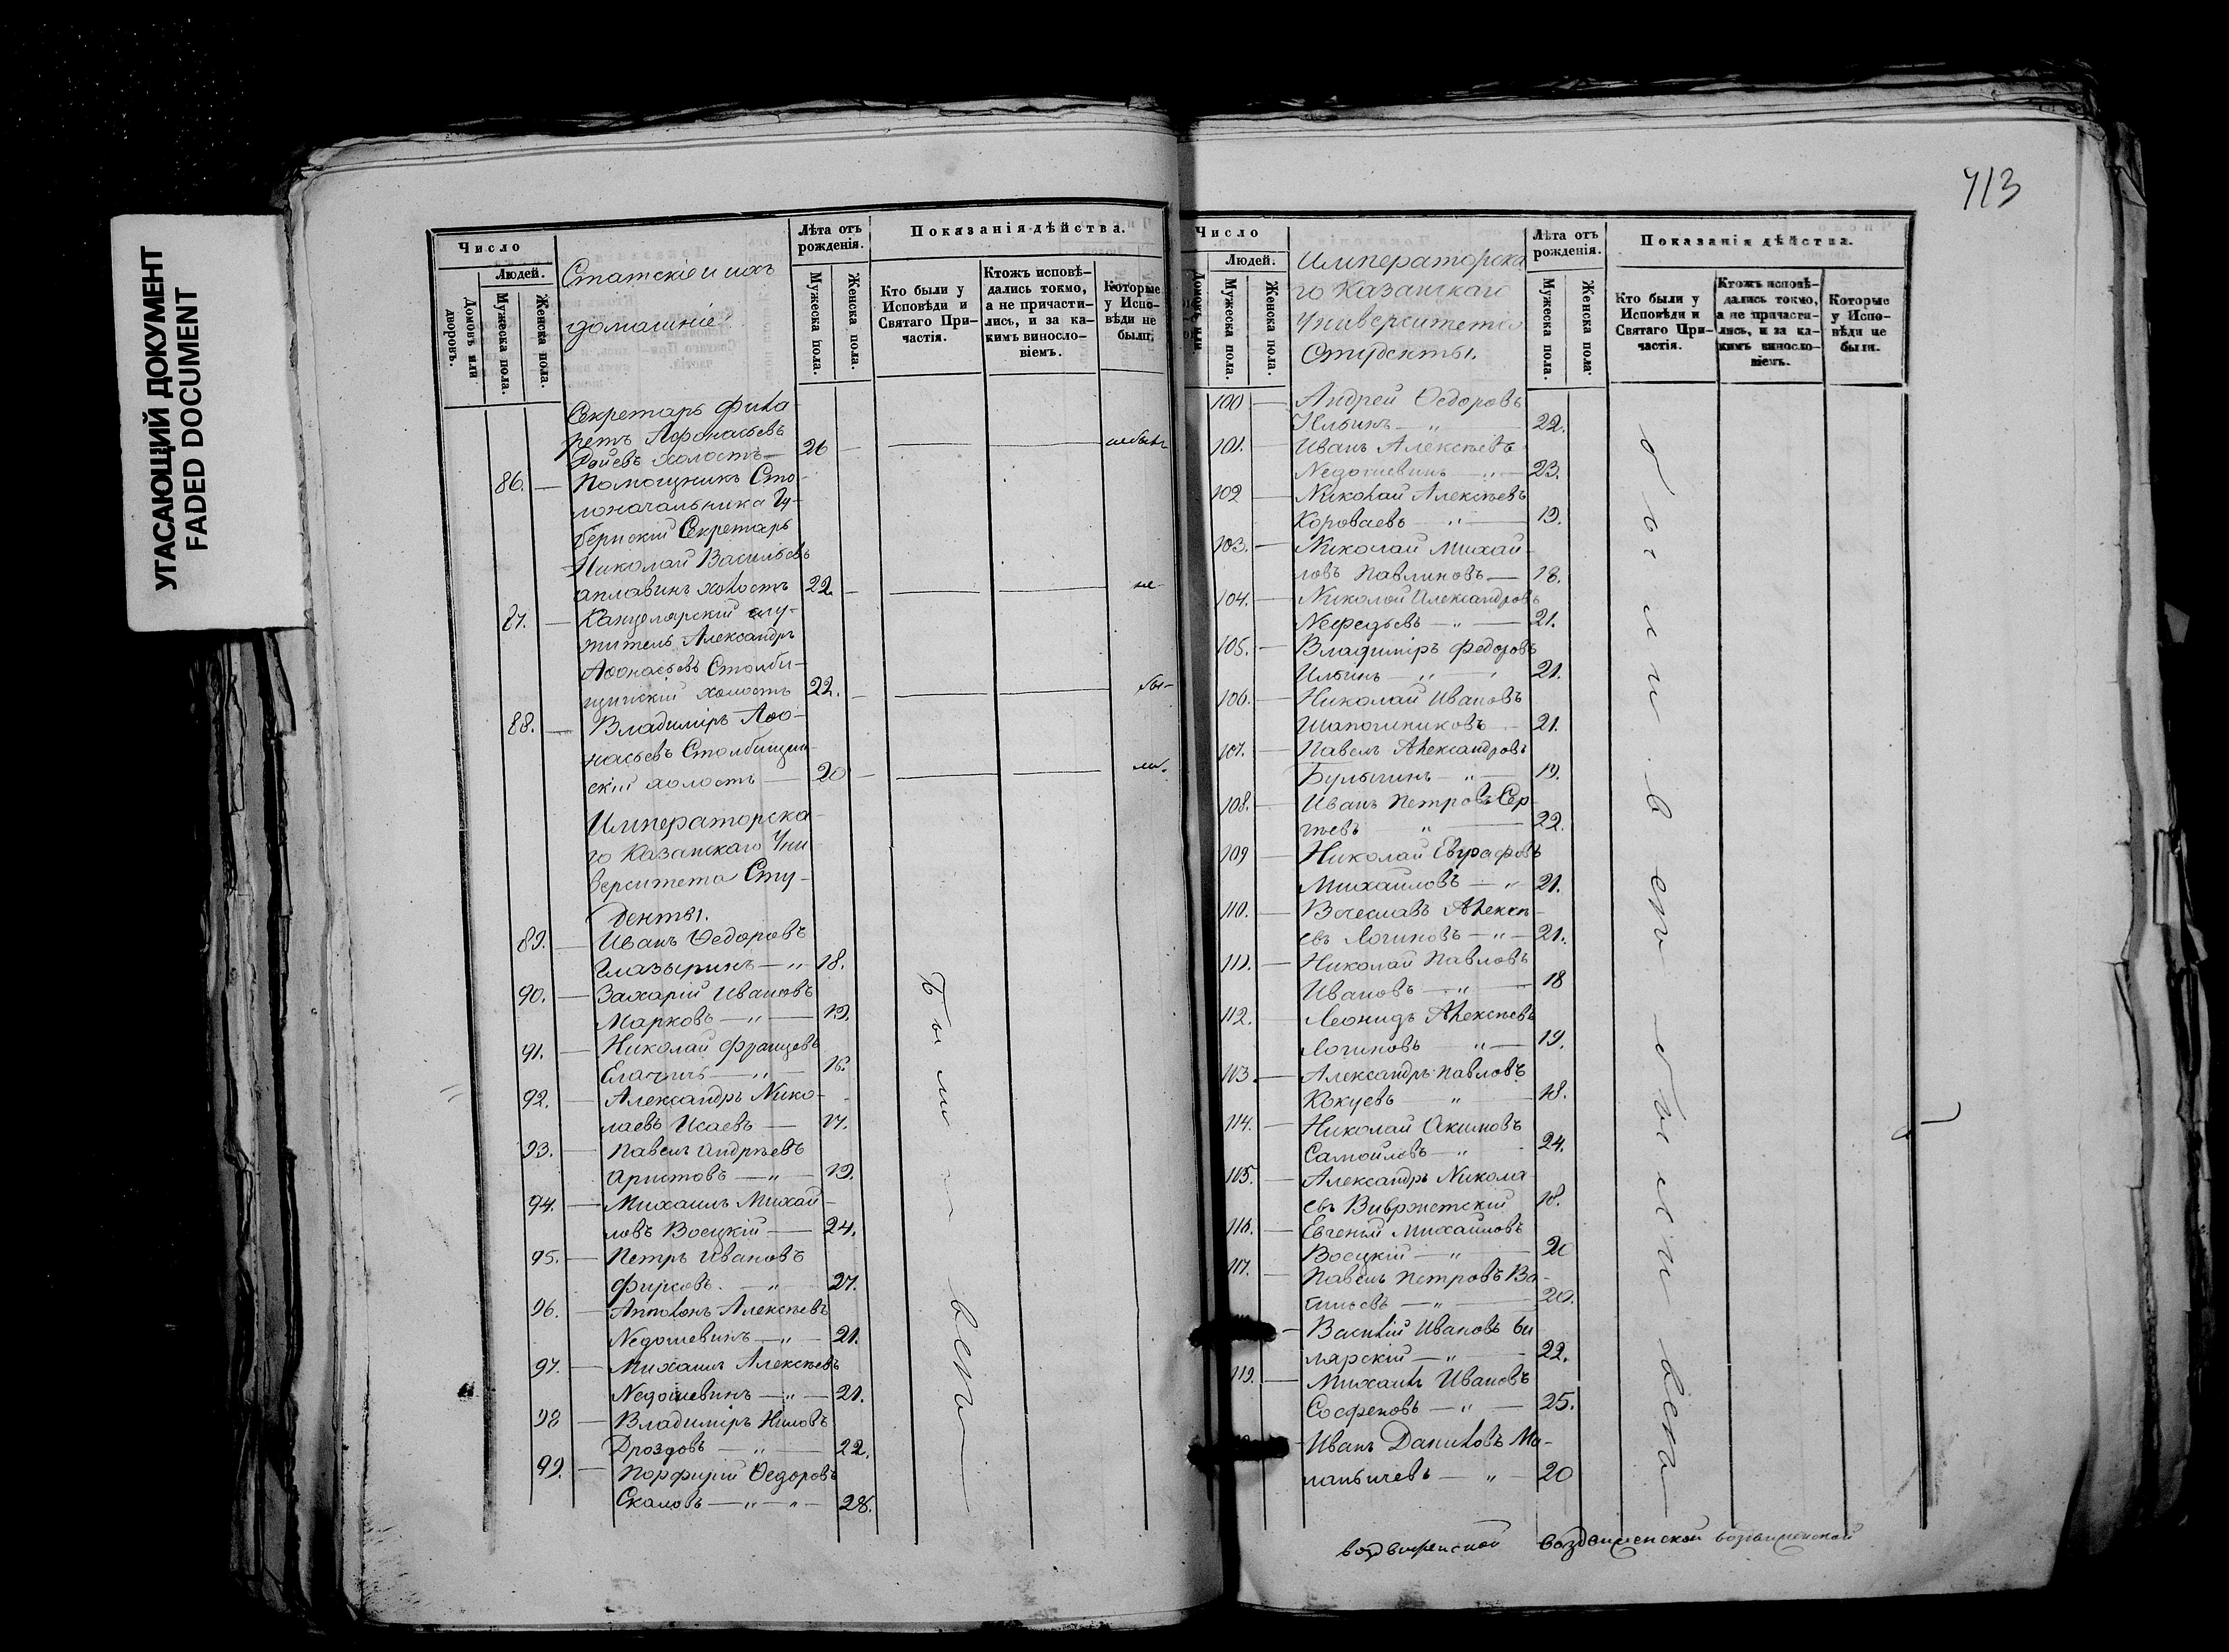 УГАСАЮЩИЙ ДОКУМЕНТ
FADED DOCUMENT
Число
Людей.
Домовъ или дворовъ.
Мужеска пола.
Женска пола.
Статскіе и ихъ
домашніе.
Лѣта отъ рожденія.
Мужеска пола.
Женска пола.
Показанія дѣйства.
Кто были у Исповѣди и Святаго Причастія.
Ктожъ исповѣ-
дались токмо,
а не причасти-
лись, и за ка-
кимъ винословіемъ.
Которые
у Испо-
вѣди не
были.
Секретарь Фила-
ретъ Афонасьевъ
холостъ 26 небыли
86. Помощникъ Сто-
лоначальника Гу-
бернскій Секретарь
Николай Васильевъ
холостъ 22 не-
87. Канцелярскій слу-
житель Александръ
Аѳонасьевъ Столби-
щинскій холостъ 22. бы-
88. Владиміръ Аѳо-
насьевъ Столбищин-
скій холостъ 20 ли.
Императорска-
го Казанскаго Уни
верситета Сту-
денты.
89. Иванъ Ѳедоровъ
Глазыринъ " 18.
90. Захарій Ивановъ
Марковъ " 19.
91. Николай Францевъ
Елачичъ "
92. Александръ Нико-
лаевъ Исаевъ 17.
93. Павелъ Андреевъ
Аристовъ " 19.
94. Михаилъ Михай-
ловъ Воецкій 24.
95. Петръ Ивановъ
Фирсовъ. " 27.
96. Алексѣевъ
Недошевинъ " 21.
97. Михаилъ Алексѣевъ
Недошевинъ " 21.
98 Владиміръ Ниловъ
Дроздовъ " 22.
99. Порфирій Ѳедоровъ
Скаловъ " " 28.
Были
413
Число
Людей.
Домовъ или
Мужеска пола.
Женска пола.
Императорска
го Казанскаго
Университета
Студенты.
Лѣта отъ рожденія.
Мужеска пола.
Женска пола.
Показанія дѣйства.
Кто были у
Исповѣди и
Святаго При-
частія.
Ктожъ исповѣ-
дались токмо,
а не причасти-
лись, и за ка-
кимъ винословіемъ.
Которые
у Испо-
вѣди не
были.
100 Андрей Ѳедоровъ
Ильинъ " 22.
101. Иванъ Алексѣевъ
Недошевинъ " 23.
102 Николай Алексѣевъ
Короваевъ " 19.
103. Николай Михай-
ловъ Павлиновъ 18.
104. Николай Александровъ
Нефедьевъ " 21.
105. Владиміръ Федоровъ
Ильинъ " 21.
106. Николай Ивановъ
Шапошниковъ 21.
107. Павелъ Александровъ
Булыгинъ " 19.
108. Иванъ Петровъ Сер-
гѣевъ " 22.
109 Николай Евграфовъ
Михайловъ " 21.
110. Вячеславъ Алексѣ-
евъ Логиновъ " 21.
111. Николай Павловъ
Ивановъ " 18
112. Леонидъ Алексѣевъ
Логиновъ " 19.
113. Александръ Павловъ
Кокуевъ " 18.
114. Николай Акимовъ
Самойловъ " 24.
115. Александръ Никола
евъ 18.
116. Евгеній Михайловъ
Воецкій " 20
117. Павелъ Петровъ Ва-
сильевъ " 20.
Василій Ивановъ Би
лярскій " 22.
119. Михаилъ Ивановъ
Сосфеновъ " 25.
Иванъ Даниловъ Ма-
" 20
были
были
воздвиженской воздвиженской воздвиженской